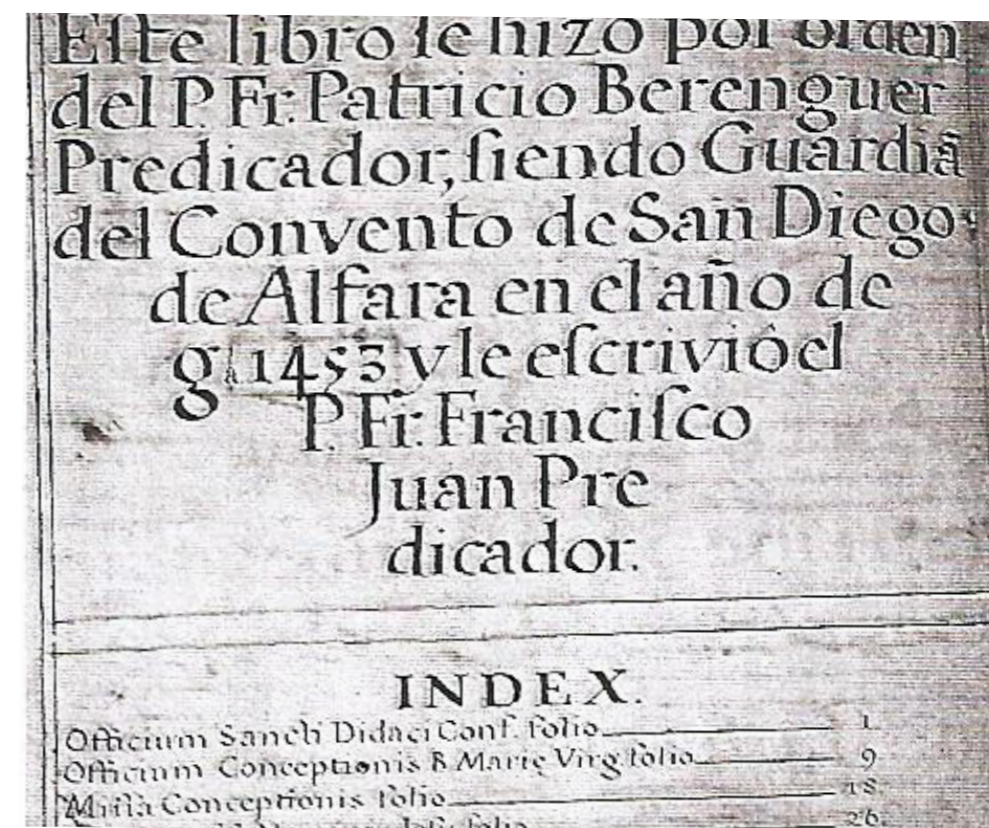 Eſte libro ſe hizo por orden
del P. Fr. Patricio Berenguer
Predicador, ſiendo Guardiã
del Convento de San Diego
de Alfara en el año de
1453 y le eſcriviô el
P. Fr. Franciſco
Juan Pre
dicador.
INDEX.
Officium Sancti Didaci Conf. folio 1
Officium Conceptionis B. Marię Virg. folio 9
Miſſa Conceptionis folio 18
26.